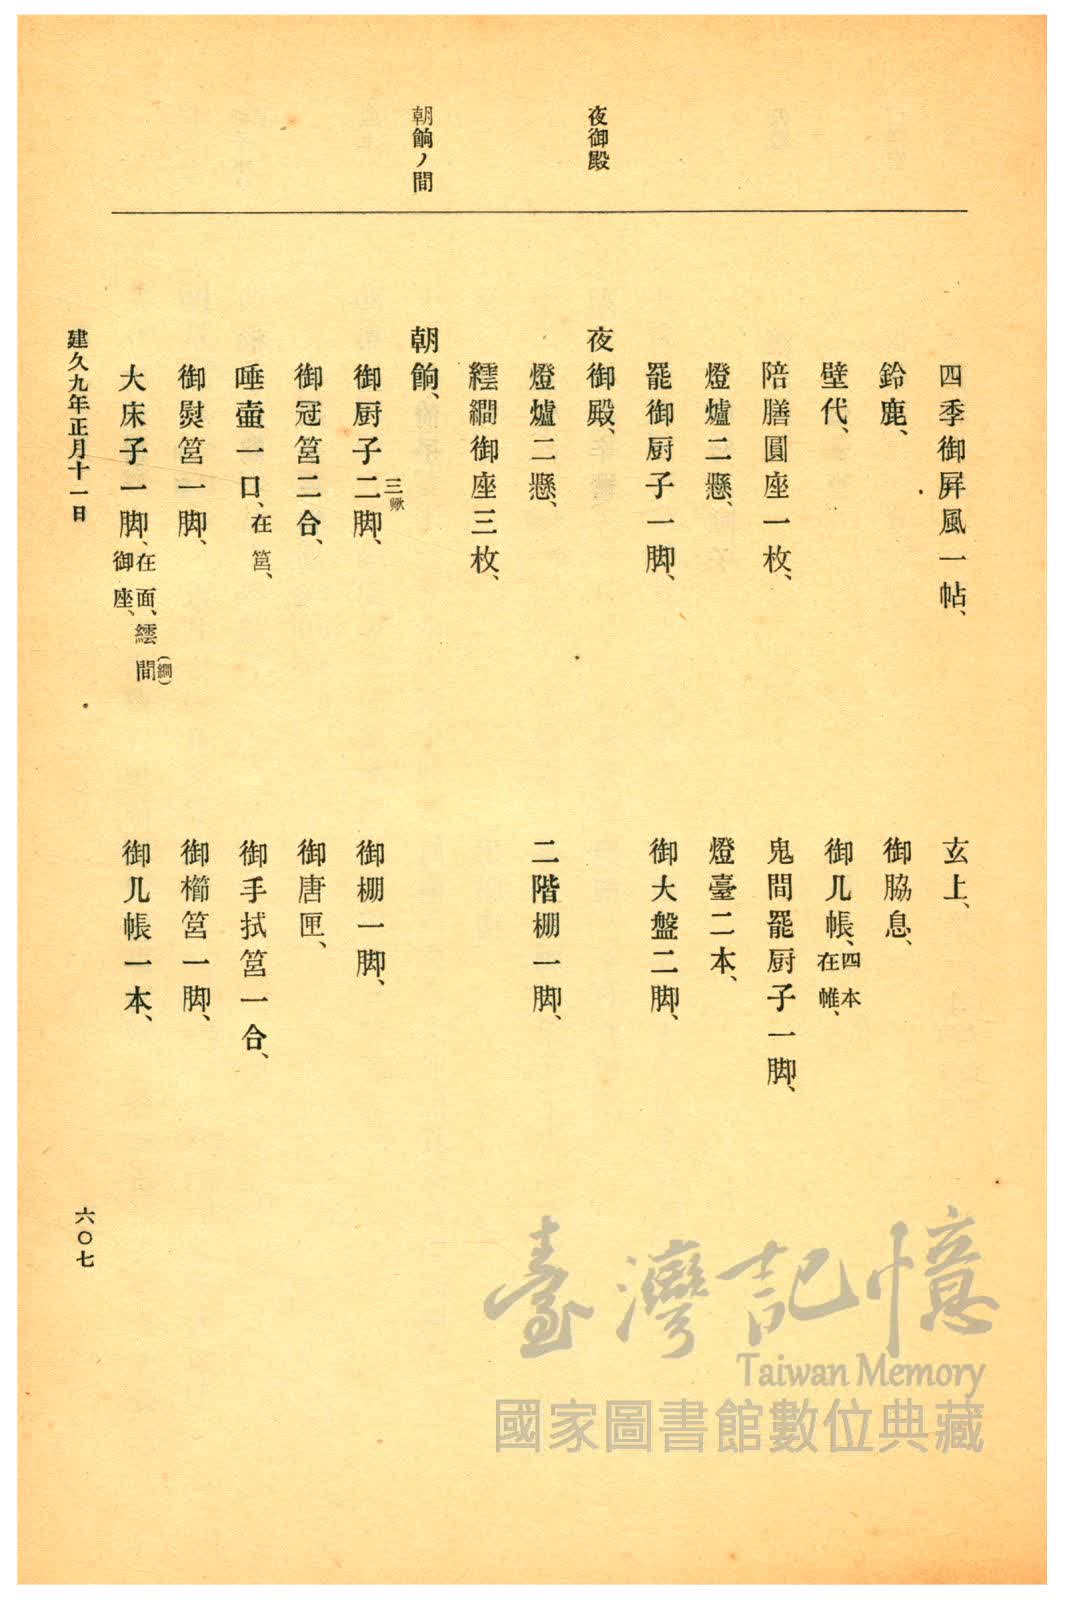 夜御殿
朝餉ノ間
四季御屛風一帖、
玄上、
鈴鹿、
御脇息、
壁代、
御几帳、四本在帷、
陪膳圓座一枚、
鬼間罷厨子一脚、
燈爐二懸、
燈臺二本、
罷御厨子一脚、
御大盤二脚、
夜御殿、
燈爐二懸、
二階棚一脚、
繧繝御座三枚、
朝餉、
御厨子二脚、三歟
御棚一脚、
御冠筥二合、
御唐匣、
唾壷一口、在筥、
御手拭筥一合、
御熨筥一脚、
御櫛筥一脚、
大床子一脚、在面、繧間(繝)御座、
御几帳一本、
建久九年正月十一日
六〇七
臺灣記憶
Taiwan Memory
國家圖書館數位典藏